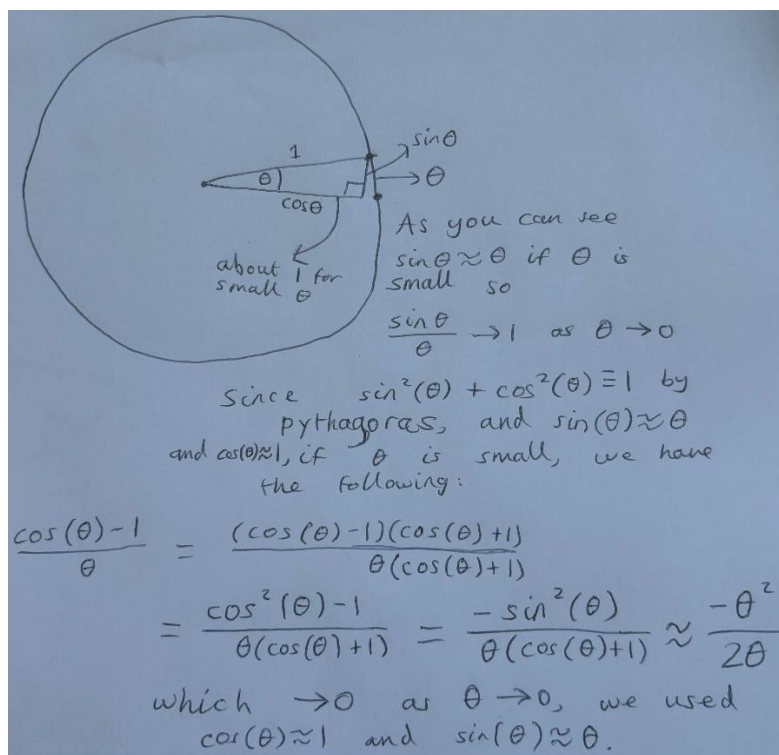 1
sinθ
θ
θ
cosθ
about 1 for
small θ
As you can see
sinθ ≈ θ if θ is
small so
sinθ/θ → 1 as θ → 0
Since sin²(θ) + cos²(θ) ≡ 1 by
pythagoras, and sin(θ) ≈ θ
and cos(θ)≈1, if θ is small, we have
the following:
(cos(θ)-1)/θ = (cos(θ)-1)(cos(θ)+1)/θ(cos(θ)+1)
= (cos²(θ)-1)/θ(cos(θ)+1) = -sin²(θ)/θ(cos(θ)+1) ≈ -θ²/2θ
which →0 as θ→0, we used
cos(θ)≈1 and sin(θ)≈θ.